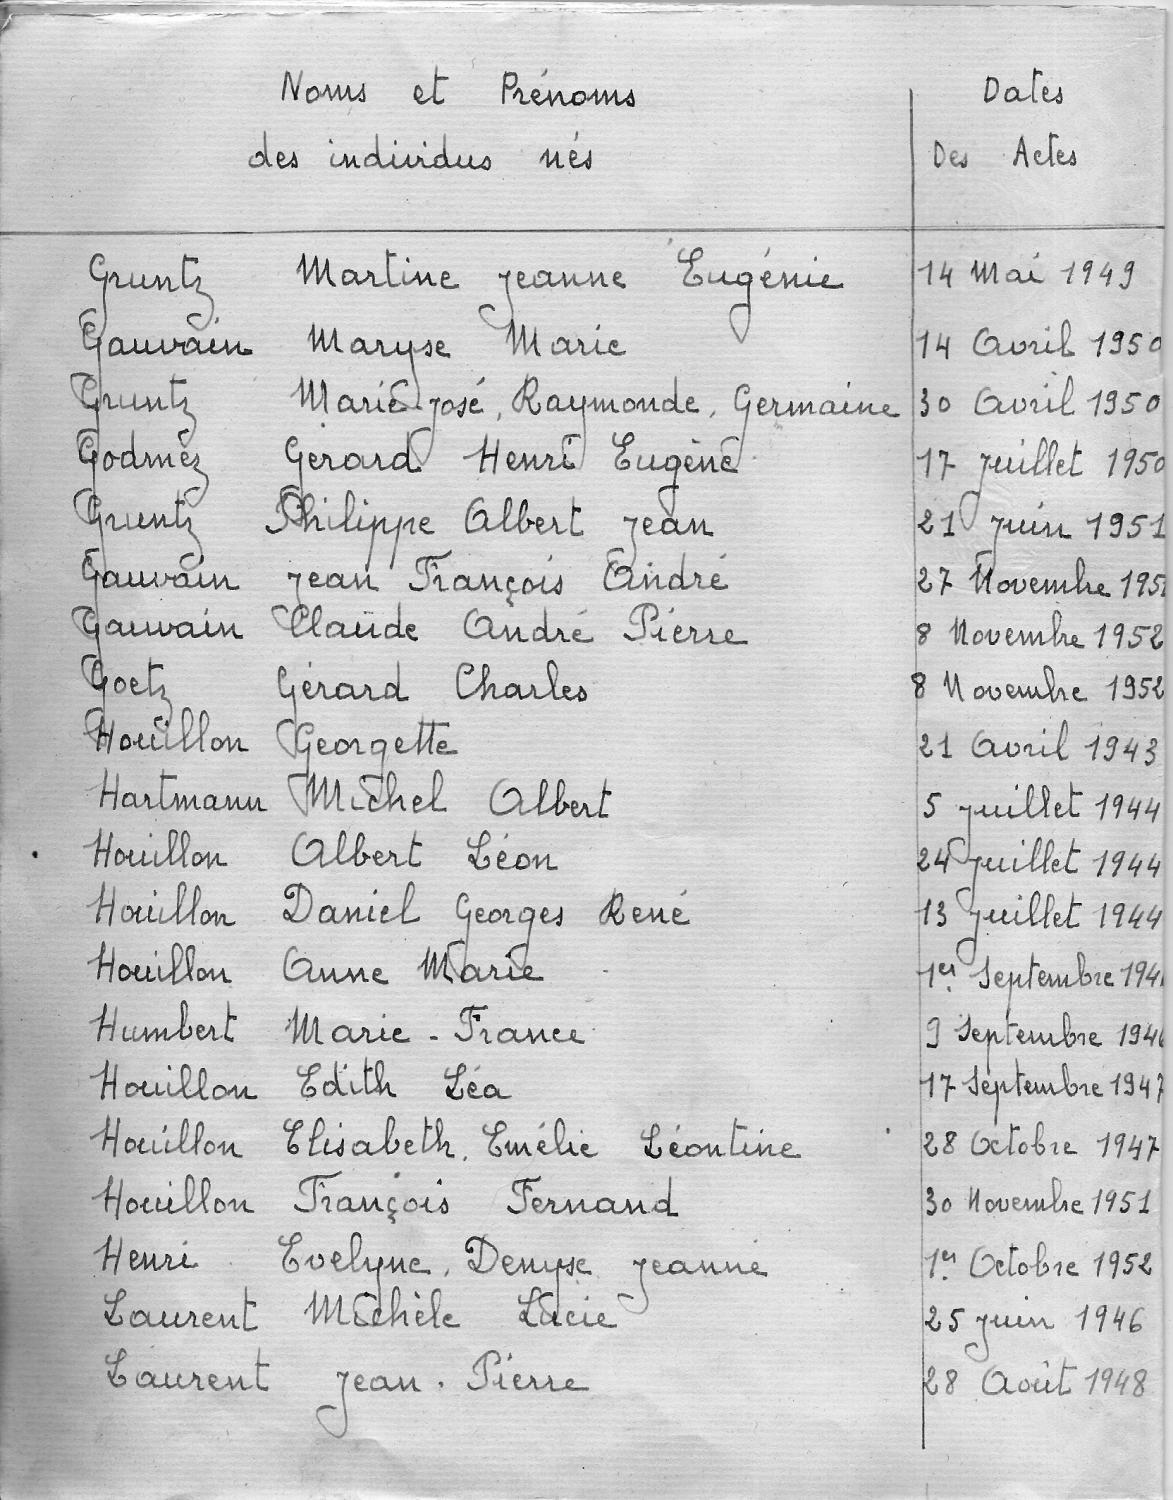 Noms et Prénoms Dates
des individus nés Des Actes
Gruntz Martine Jeanne Eugénie 14 Mai 1949
Gauvain Maryse Marie 14 Avril 1950
Gruntz Marie-José, Raymonde, Germaine 30 Avril 1950
Godmez Gérard Henri Eugène 17 Juillet 1950
Gruntz Philippe Albert Jean 21 Juin 1951
Gauvain Jean François André 27 Novembre
Gauvain Claude André Pierre 8 Novembre 1952
Goetz Gérard Charles 8 Novembre 1952
Houillon Georgette 21 Avril 1943
Hartmann Michel Albert 5 Juillet 1944
Houillon Albert Léon 24 Juillet 1944
Houillon Daniel Georges René 13 Juillet 1944
Houillon Anne Marie 1er Septembre
Humbert Marie-France 9 Septembre 1946
Houillon Edith Léa 17 Septembre 1947
Houillon Elisabeth, Emélie Léontine 28 Octobre 1947
Houillon François Fernand 30 Novembre 1951
Henri Evelyne, Denyse Jeanne 1er Octobre 1952
Laurent Michèle Lucie 25 Juin 1946
Laurent Jean-Pierre 28 Août 1948